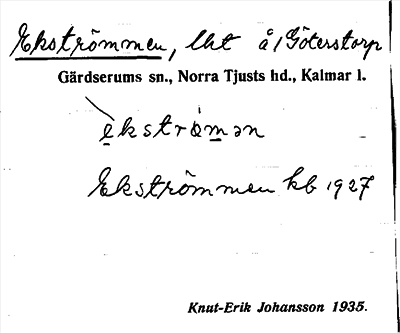 Ekströmmen, lht å/Göterstorp
Gärdserums sn., Norra Tjusts hd., Kalmar l.
ekströmən
Ekströmmen kb 1927
Knut-Erik Johansson 1935.